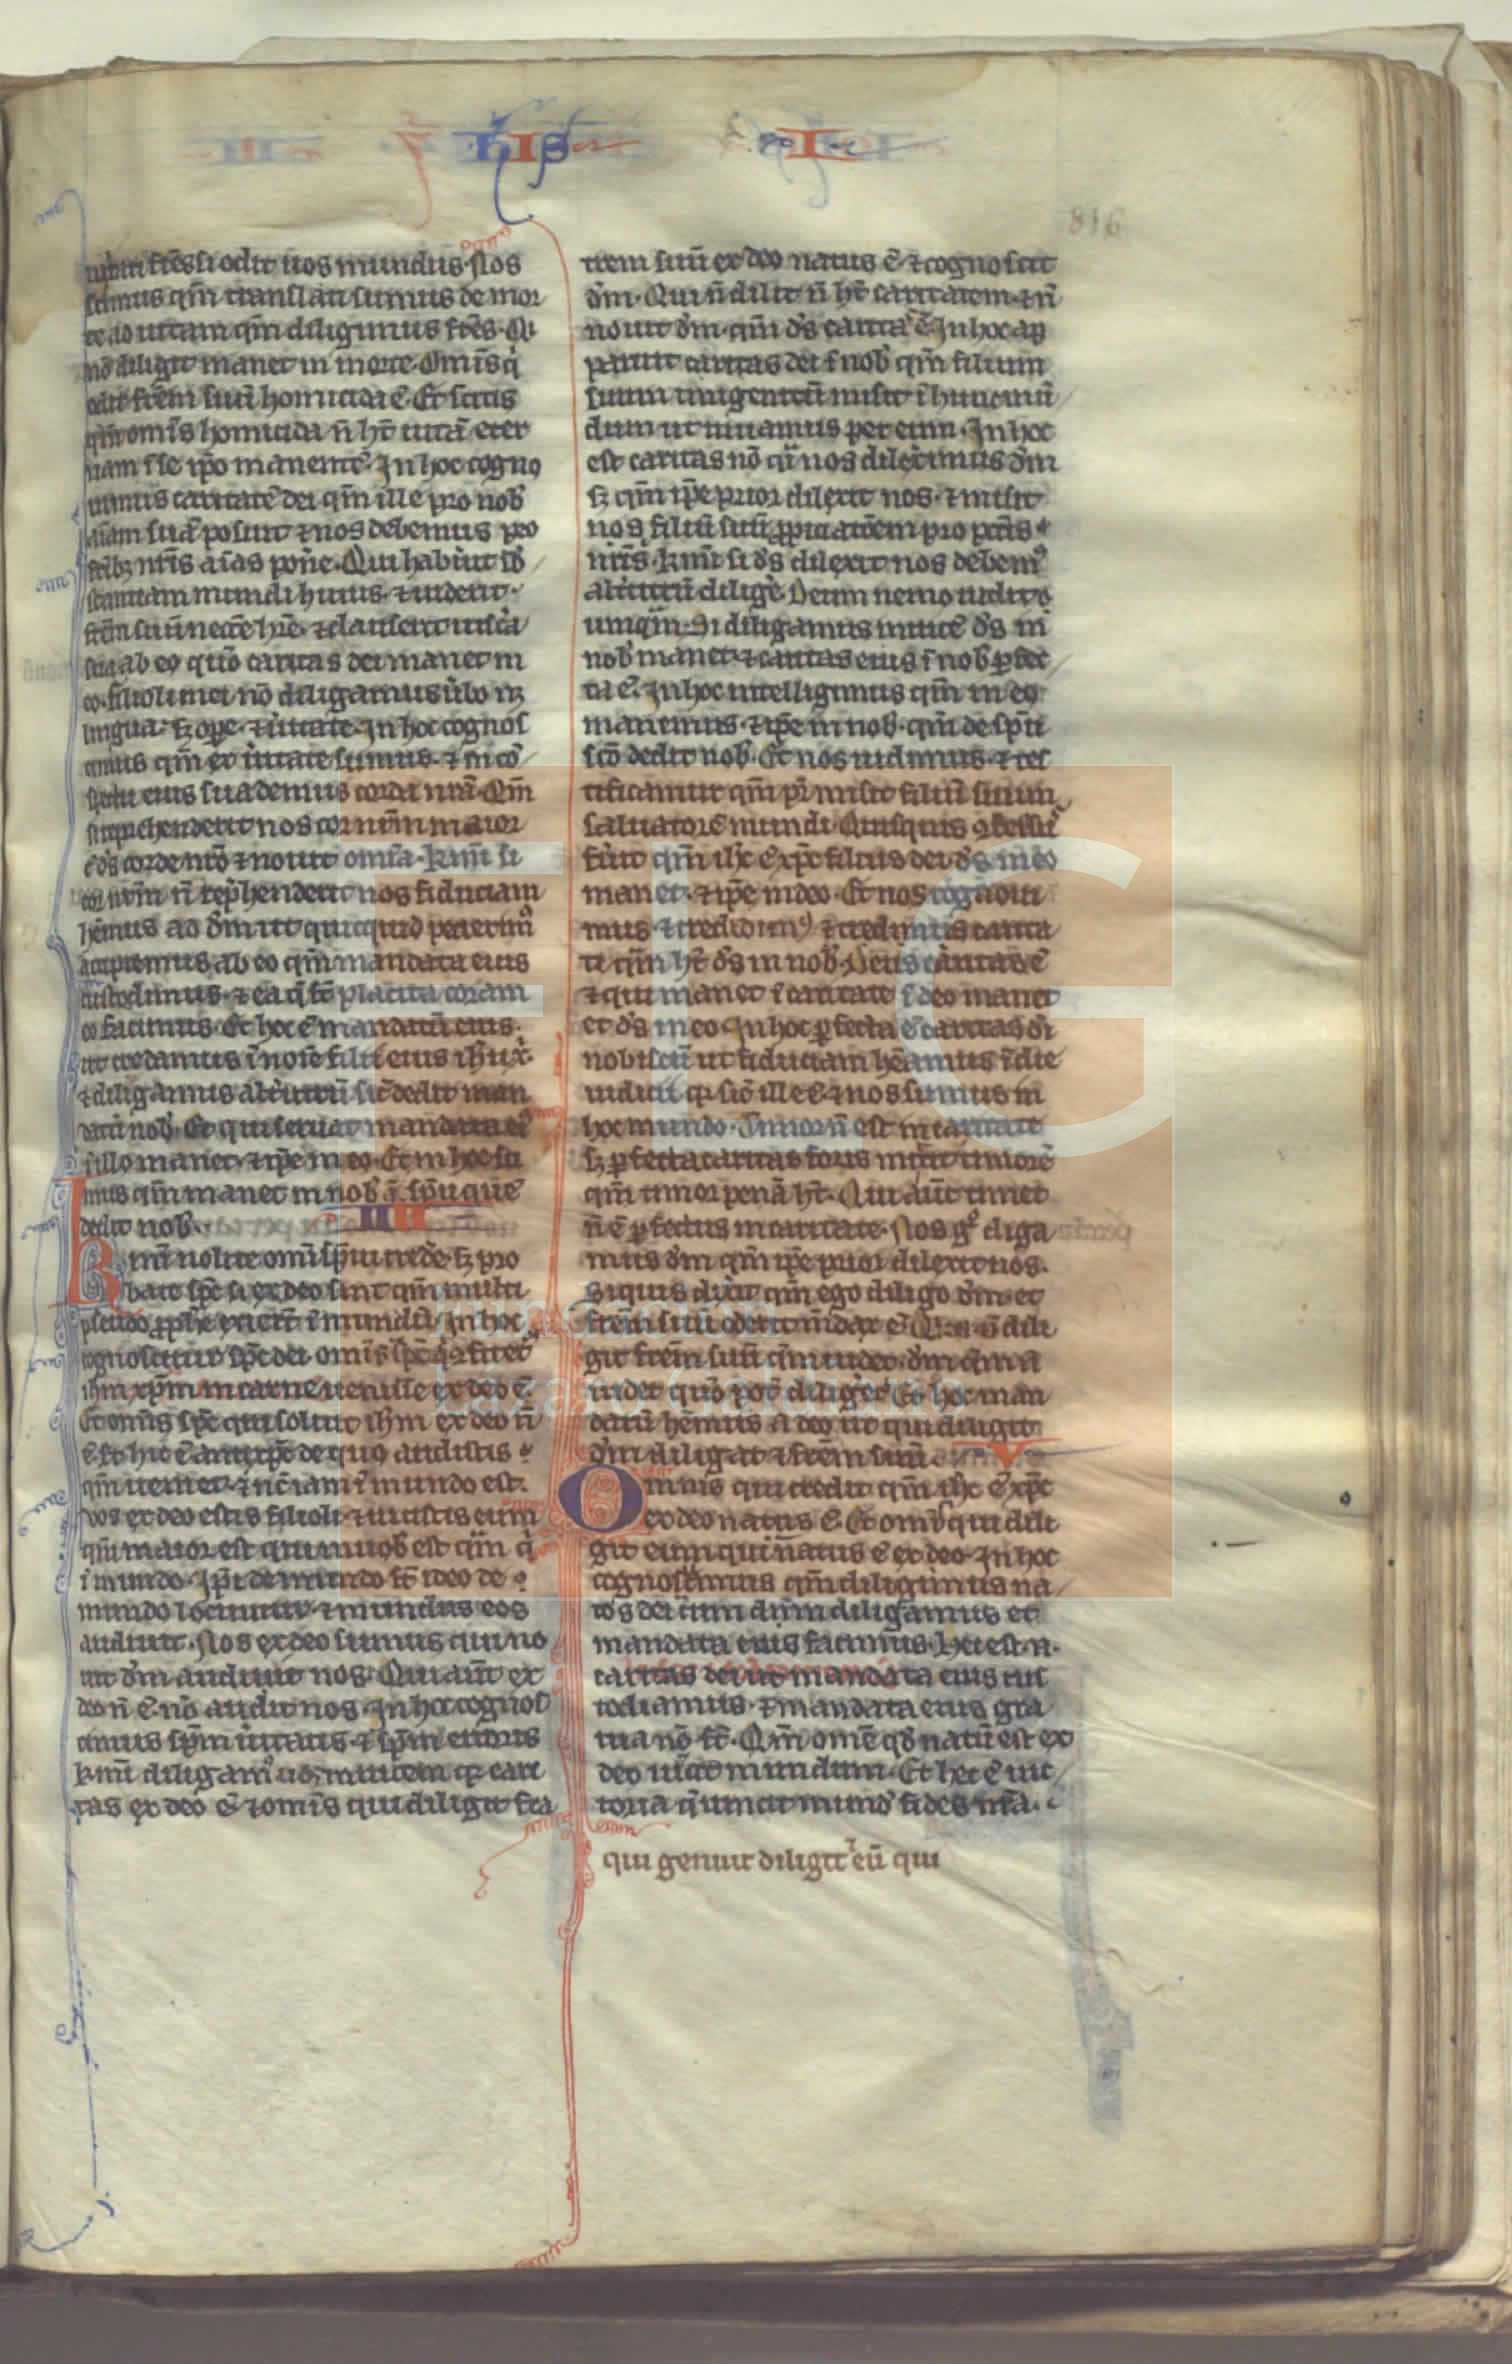 hIS I
816
mirari fr̄es si odit uos mundus. Nos
scimus qm̄ translati sumus de mor
te ad uitam qm̄ diligimus fr̄es. Qi
nō diligit manet in morte. Omīs q̇
odit fr̄em suū homicida ē. Et scitis
qm̄ omīs homicida n̄ ht̄ uitā eter
nam ī se ip̄o manentē. In hoc cogno
uimus caritatē dei qm̄ ille pro nob̄
aīam suā posuit ⁊ nos debemus pro
fr̄ibꝫ nr̄is aīas pone̅. Qui habuit sb̄
stantiam mundi huius. ⁊ uiderit
fr̄em suū necc̄e hr̄e. ⁊ clauserit uisca
sua ab eo quō caritas dei manet in
eo. filioli mei nō diligamus ubo nꝫ
lingua. sꝫ ope. ⁊ uitate. In hoc cognos
cimus qm̄ ex uitate sumus. ⁊ in cō
spectu eius suademus corda nr̄a. Qm̄
si reprehenderit nos cor nr̄m maior
ē ds̄ corde nr̄o ⁊ nouit omīa. Kmī si
cor nr̄m n̄ rep̄henderit nos fiduciam
hēmus ad dm̄ ut quicquid petierim᾽
accipiemus ab eo qm̄ mandata eius
custodimus. ⁊ ea q̄ st̄ placita coram
eo facimus. Et hoc ē mandatū eius.
ut credamus ī noīe filii eius ih̄u xp̄i
⁊ diligamus altutrū sic̄ dedit man
datū nob̄. Et qui seruat mandata ei᾽
ī illo manet. ⁊ ip̄e in eo. Et in hoc sci
mus qm̄ manet in nob̄ d̄ sp̄u quē
dedit nob̄. IIII
Kmī nolite omī sp̄ui crede̅. sꝫ pro
bate sp̄c si ex deo sint qm̄ multi
pseudo pphe exierūt ī mundū. In hoc
cognoscitur sp̄c dei omīs sp̄c q̇ ꝯfitet᾽
ih̄m xp̄m in carne uenisse ex deo ē.
Et omīs sp̄c qui soluit ih̄m ex deo n̄
ē. Et hic ē antixp̄c de quo audistis
qm̄ uenit. ⁊ nc̄ iam ī mundo est.
Vos ex deo estis filioli ⁊ uicistis eum
qm̄ maior est qui in uob̄ est qm̄ q̇
ī mundo. Ip̄i de mundo st̄ ideo de
mundo locuntur ⁊ mundus eos
audiuit. Nos ex deo sumus qui no
uit dm̄ audiuit nos. Qui aut̄ ex
deo n̄ ē. nō audit nos. In hoc cognos
cimus sp̄m uitatis. ⁊ sp̄m erroris
Kmī diligam᾽ nos inuicem qꝫ cari
tas ex deo ē. ⁊ omīs qui diligit fra
trem suū ex deo natus ē ⁊ cognoscit
dm̄. Qui n̄ dilit n̄ ht̄ caritatem. ⁊ n̄
nouit dm̄. qm̄ ds̄ carita ē. In hoc ap
paruit caritas dei ī nob̄ qm̄ filium
suum unigenitū misit ī hunc mū
dum ut uiuamus per eum. In hoc
est caritas nō q̄i nos dilexerimus dm̄
sꝫ qm̄ ip̄e prior dilexit nos. ⁊ misit
nos filiū suū ppiciatōem pro pctīs
nr̄is. Kmī si ds̄ dilexit nos debem᾽
altutrū dilige̅. Deum nemo uidit
umqm̄. Si diligamus inuicē ds̄ in
nob̄ manet. ⁊ caritas eius ī nob̄ pfec
ta ē. In hoc intelligimus qm̄ in eo
manemus. ⁊ ip̄e in nob̄. qm̄ de sp̄u
scō dedit nob̄. Et nos uidimus. ⁊ tes
tificamur qm̄ pr̄ misit filiū suum
saluatorē mundi. Quisquis ꝯfessus
fuit qm̄ ih̄c ē xp̄c filius dei ds̄ in eo
manet. ⁊ ip̄e in deo. Et nos cognoui
mus. ⁊ credidim᾽ ⁊ credimus carita
ti qm̄ ht̄ ds̄ in nob̄. Deus caritas ē
⁊ qui manet ī caritate ī deo manet
et ds̄ in eo. In hoc pfecta ē caritas dī
nobiscū ut fiduciam hēamus ī die
iudicii qꝫ sic̄ ille ē ⁊ nos sumus in
hoc mundo. Timor n̄ est in caritate
sꝫ pfecta caritas foras mittit timorē
qm̄ timor penā ht̄. Qui aut̄ timet
n̄ ē pfectus in caritate. Nos g° diliga
mus dm̄ qm̄ ip̄e prior dilexit nos.
Si quis dix̄it qm̄ ego diligo dm̄. et
fr̄em suū oderit m̄dax ē. Qui n̄ dili
git fr̄em suū qm̄ uidet. dm̄ qm̄ n̄
uidet quō pot̄ dilige̅. Et hoc man
datū hēmus a deo ut qui diligit
dm̄ diligat ⁊ fr̄em suū. V
Omnis qui credit qm̄ ih̄c ē xp̄c
ex deo natus ē. Et omīs qui dili
git eum qui natus ē ex deo. In hoc
cognoscimus qm̄ diligimus na
tos dei cum dm̄ diligamus et
mandata eius facimus. Hec est n.
caritas dei ut mandata eius cus
todiamus. ⁊ mandata eius gra
uia nō st̄. Qm̄ omē qd̄ natū est ex
deo uincit mundum. Et hec ē uic
toria q̄ uincit mund̄ fides nr̄a.
qui genuit diligit ⁊ eū qui
FLG
Fundación
Lázaro Galdiano